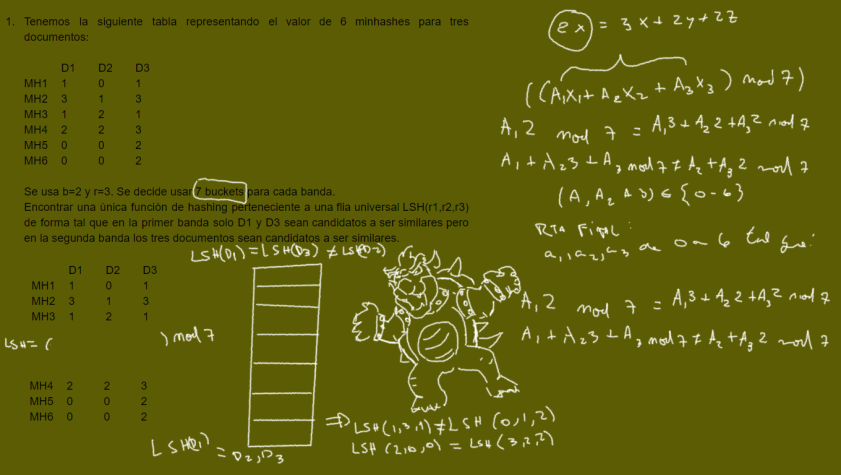 1. Tenemos la siguiente tabla representando el valor de 6 minhashes para tres
documentos:
D1 D2 D3
MH1 1 0 1
MH2 3 1 3
MH3 1 2 1
MH4 2 2 3
MH5 0 0 2
MH6 0 0 2
Se usa b=2 y r=3. Se decide usar 7 buckets para cada banda.
Encontrar una única función de hashing perteneciente a una flia universal LSH(r1,r2,r3)
de forma tal que en la primer banda solo D1 y D3 sean candidatos a ser similares pero
en la segunda banda los tres documentos sean candidatos a ser similares.
LSH(D1) = LSH(D3) ≠ LSH(D2)
D1 D2 D3
MH1 1 0 1
MH2 3 1 3
MH3 1 2 1
LSH = ( ) mod 7
MH4 2 2 3
MH5 0 0 2
MH6 0 0 2
LSH(D1)
= D2, D3
=> LSH(1,3,1) ≠ LSH (0,1,2)
LSH (2,0,0) = LSH(3,2,2)
ex = 3x + 2y + 2z
((A1X1 + A2X2 + A3X3) mod 7)
A1 2 mod 7 = A1 3 + A2 2 + A3 2 mod 7
A1 + A2 3 + A3 mod 7 ≠ A2 + A3 2 mod 7
(A1 A2 A3) ∈ {0-6}
RTA Final:
a1, a2, a3 de 0 a 6 tal que:
A1 2 mod 7 = A1 3 + A2 2 + A3 2 mod 7
A1 + A2 3 + A3 mod 7 ≠ A2 + A3 2 mod 7